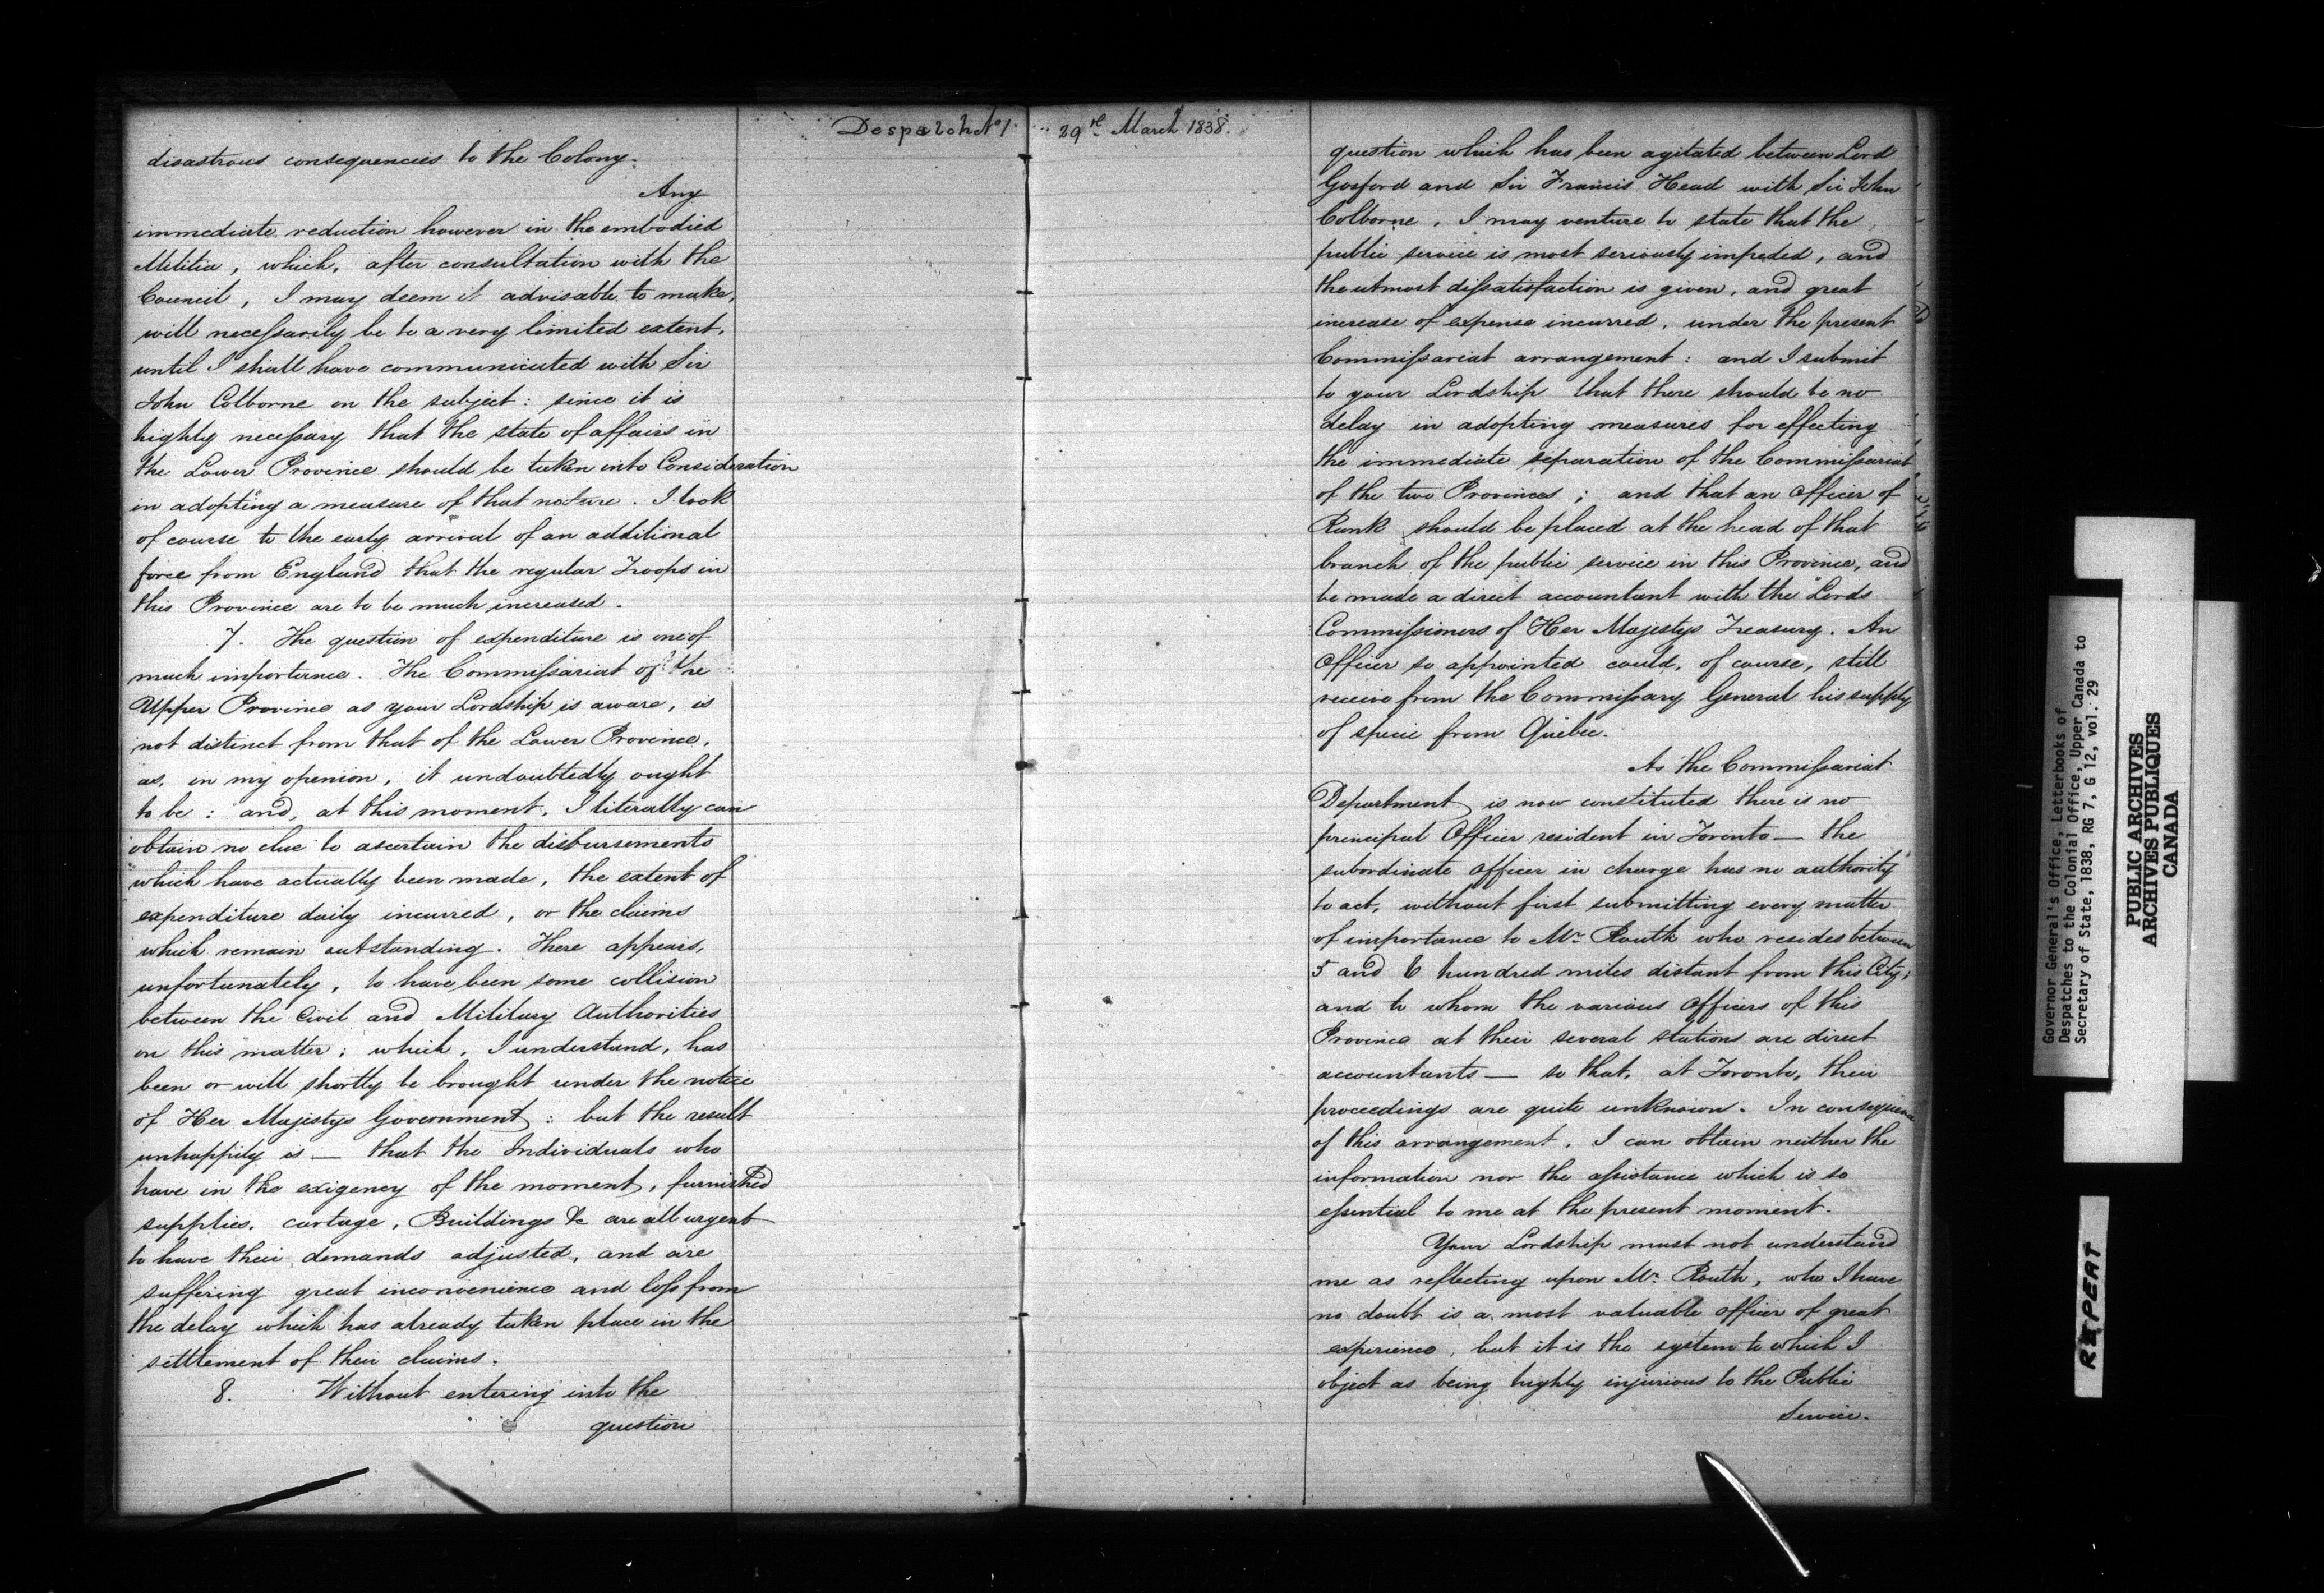 Despatch No 1.
29th March 1838.
disastrous consequencies to the Colony.
Any
immediate reduction however in the embodied
Militia, which, after consultation with the
Council, I may deem it advisable to make,
will necessarily be to a very limited extent,
until I shall have communicated with Sir
John Colborne on the subject: since it is
highly necessary that the state of affairs in
the Lower Province should be taken into Consideration
in adopting a measure of that nature. I look
of course to the early arrival of an additional
force from England that the regular Troops in
this Province are to be much increased.
7. The question of expenditure is one of
much importance. The Commissariat of the
Upper Province as your Lordship is aware, is
not distinct from that of the Lower Province,
as, in my openion, it undoubtedly ought
to be: and, at this moment, I literally can
obtain no clue to ascertain the disbursements
which have actually been made, the extent of
expenditure daily incurred, or the claims
which remain outstanding. There appears,
unfortunately, to have been some collision
between the Civil and Military Authorities
on this matter; which, I understand, has
been or will shortly be brought under the notice
of Her Majestys Government: but the result
unhappily is — that the Individuals who
have in the exigency of the moment, furnished
supplies, cartage, Buildings &c are all urgent
to have their demands adjusted, and are
suffering great inconvenience and loss from
the delay which has already taken place in the
setttement of their claims.
8. Without entering into the
question
question which has been agitated between Lord
Gosford and Sir Francis Head with Sir John
Colborne, I may venture to state that the
public service is most seriously impeded, and
the utmost dissatisfaction is given, and great
increase of expense incurred, under the present
Commissariat arrangement: and I submit
to your Lordship that there should be no
delay in adopting measures for effecting
the immediate separation of the Commissariat
of the two Provinces; and that an Officer of
Rank should be placed at the head of that
branch of the public service in this Province, and
be made a direct accountant with the Lords
Commissioners of Her Majestys Treasury. An
Officer so appointed could, of course, still
receive from the Commissary General his supply
of specie from Quebec.
As the Commissariat
Department is now constituted there is no
principal Officer resident in Toronto — the
subordinate officer in charge has no authority
to act, without first submitting every matter
of importance to Mr. Routh who resides between
5 and 6 hundred miles distant from this City;
and to whom the various Officers of this
Province at their several stations are direct
accountants — so that, at Toronto, their
proceedings are quite unknown. In consequence
of this arrangement, I can obtain neither the
information nor the assistance which is so
essential to me at the present moment.
Your Lordship must not understand
me as reflecting upon Mr. Routh, who I have
no doubt is a most valuable officer of great
experience, but it is the system to which I
object as being highly injurious to the Public
Service.
Governor General's Office, Letterbooks of
Despatches to the Colonial Office, Upper Canada to
Secretary of State, 1838, RG 7, G 12, vol. 29
PUBLIC ARCHIVES
ARCHIVES PUBLIQUES
CANADA
REPEAT